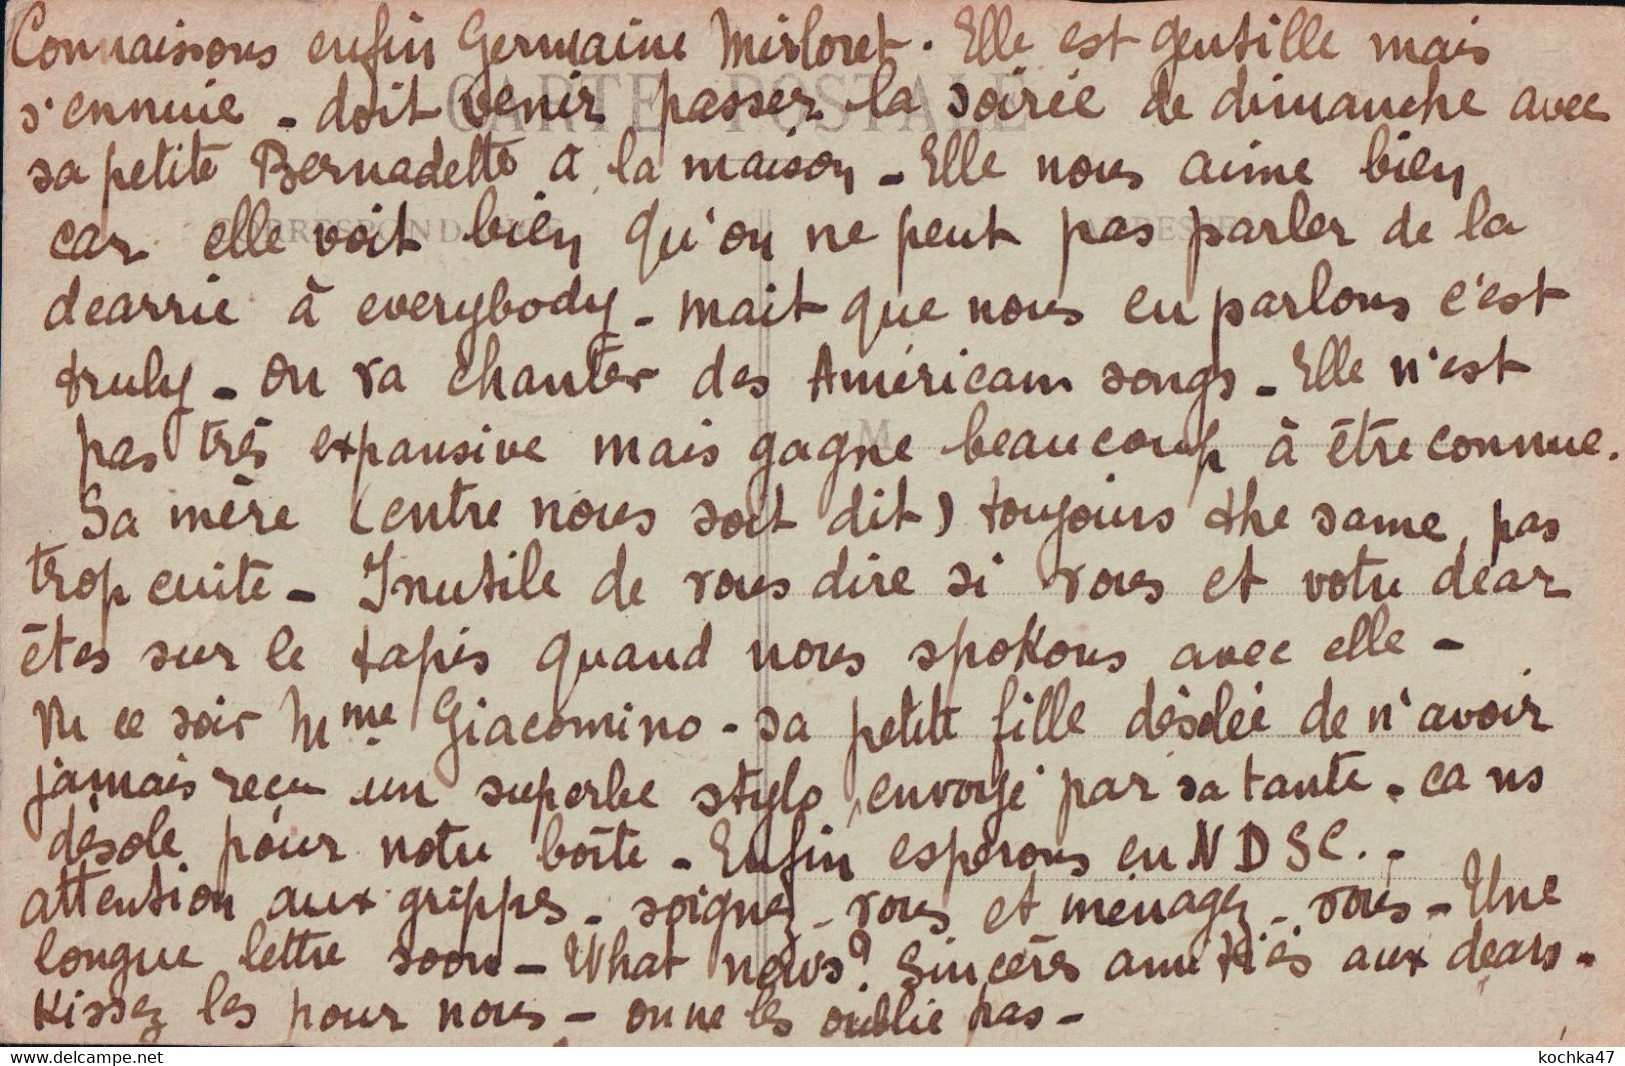 Connaissons enfin Germaine Mirloret. Elle est gentille mais
s'ennuie - doit venir passer la soirée de dimanche avec
sa petite Bernadette à la maison - Elle nous aime bien
car elle voit bien qu'on ne peut pas parler de la
dearrie à everybody - mait que nous en parlons c'est
truly - on va chanter des Américain songs - Elle n'est
pas très expansive mais gagne beaucoup à être connue.
Sa mère (entre nous soit dit) toujours the same, pas
trop cuite - Inutile de vous dire si vous et votre dear
êtes sur le tapis quand nous spokons avec elle -
Vu ce soir Mme Giacomino - sa petite fille désolée de n'avoir
jamais reçu un superbe stylo, envoyé par sa tante. ca ns
désole pour notre boîte - Enfin espérons en NDSC. -
attention aux grippes - soignez-vous et ménagez-vous - Une
longue lettre soon - What news? Sincères amitiés aux dears -
Kissez les pour nous - on ne les oublie pas -
CARTE POSTALE
CORRESPONDANCE
ADRESSE
M
www.delcampe.net
kochka47